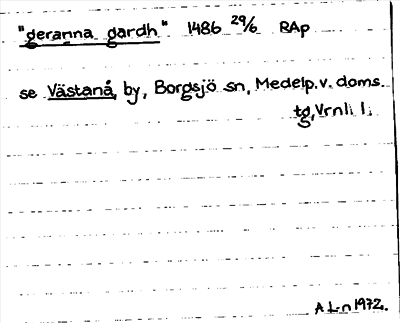 "geranna gardh" 1486 29/6 RAp
se Västanå, by, Borgsjö sn, Medelp.v. doms.
tg, Vrnl. l.
A L-n 1972.